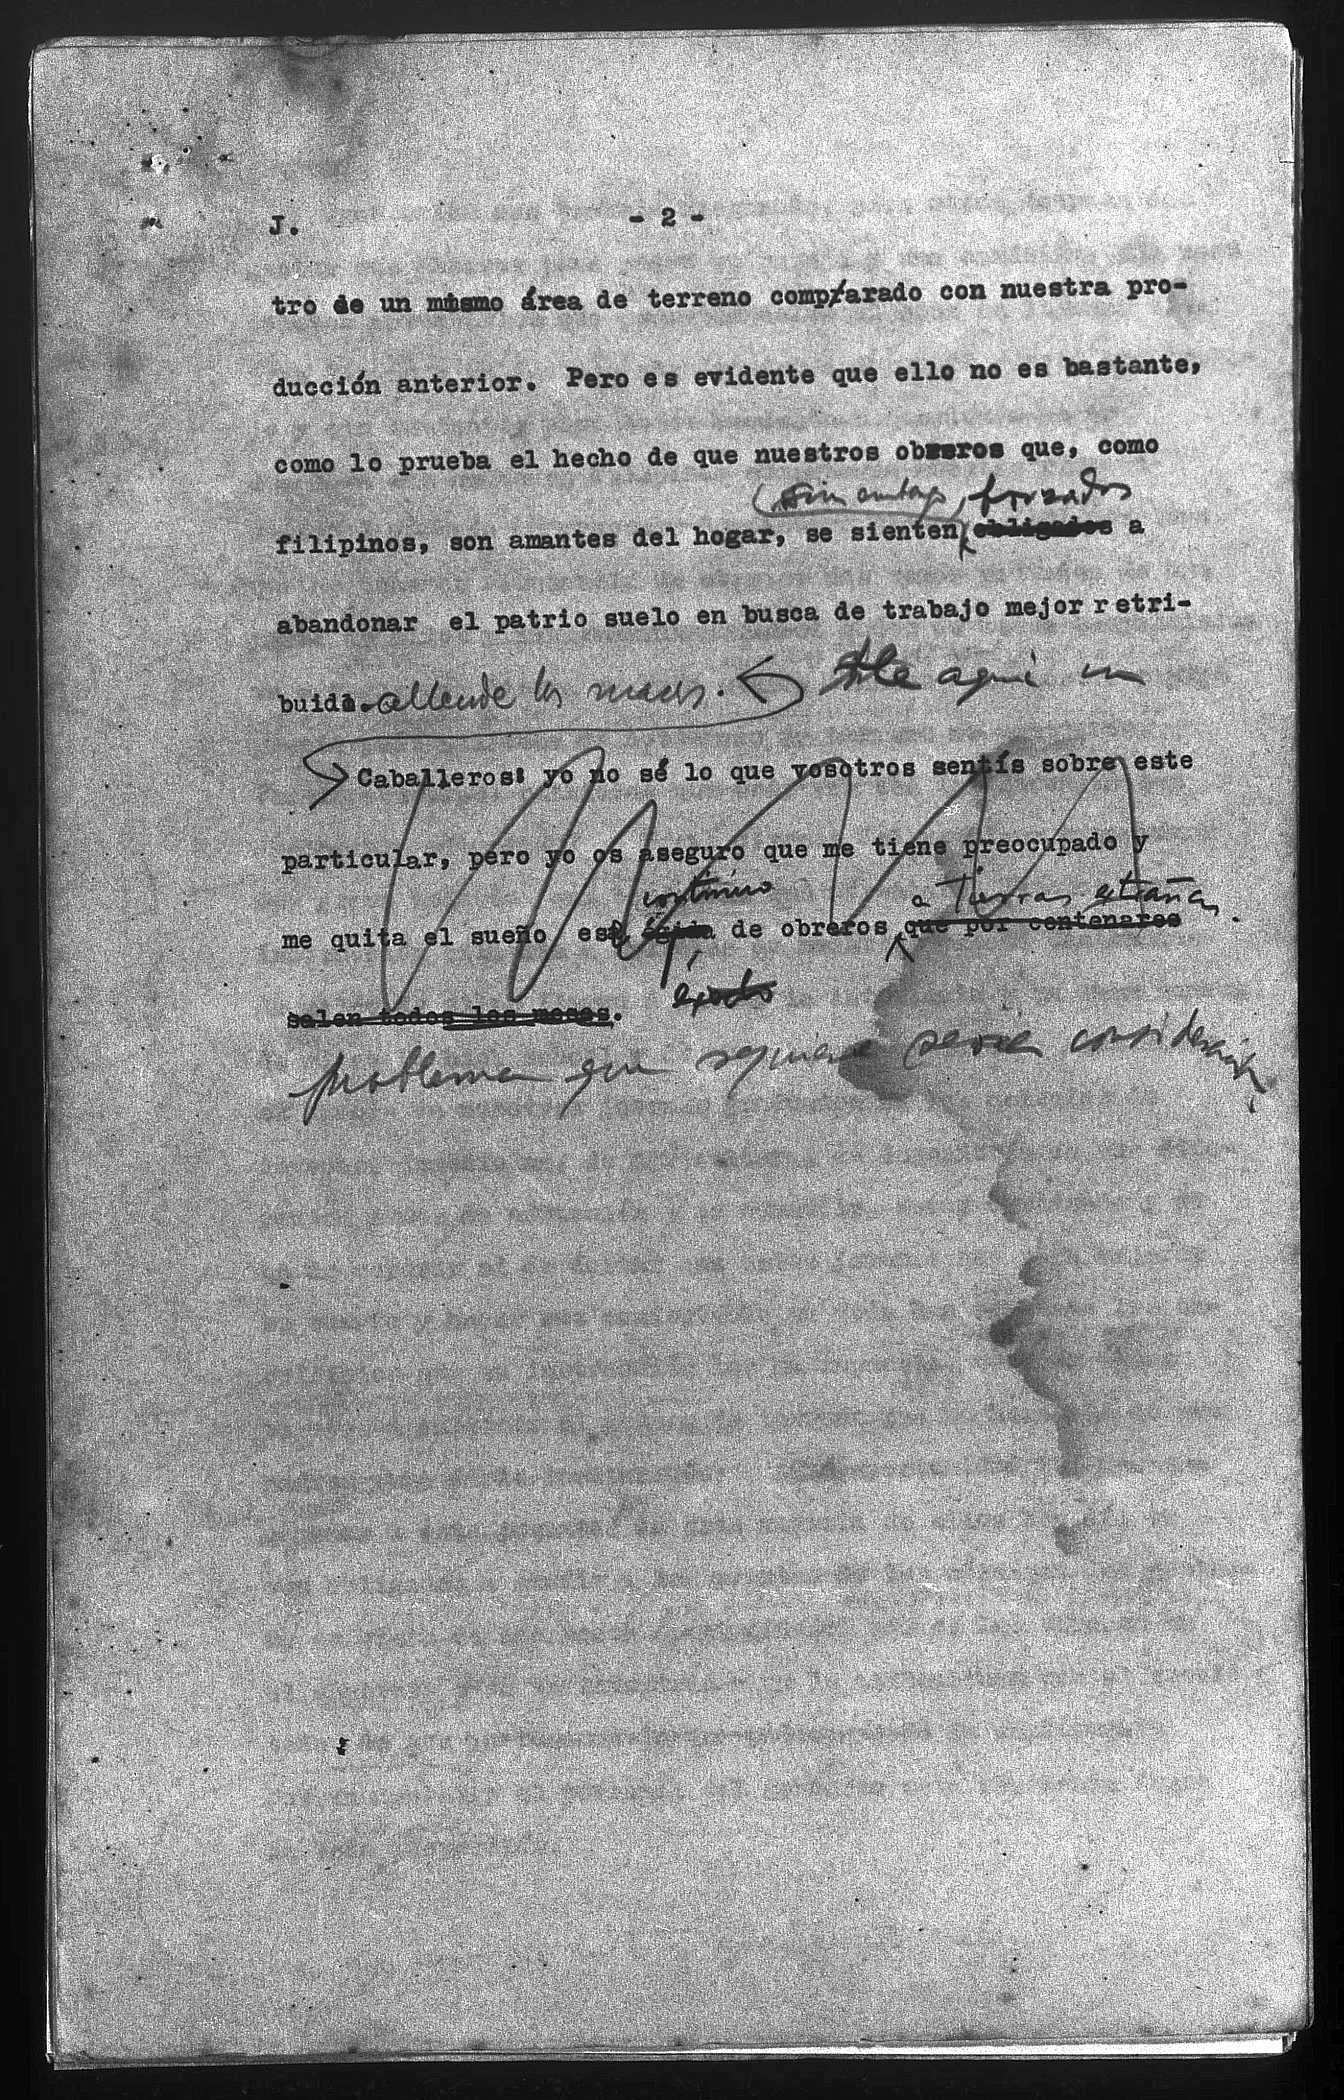 J. - 2 -
tro de un mismo área de terreno comparado con nuestra pro-
ducción anterior. Pero es evidente que ello no es bastante,
como lo prueba el hecho de que nuestros obreros que, como
(sin embargo, forzados
filipinos, son amantes del hogar, se sienten obligados a
abandonar el patrio suelo en busca de trabajo mejor retri-
buida. allende los mares. He aqui un
Caballeros: yo no sé lo que vosotros sentís sobre este
particular, pero yo os aseguro que me tiene preocupado y
continuo a tierras extrañas.
me quita el sueño ese de obreros que por centenares
salen todos los meses. éxodo
problema que requiere seria consideración,